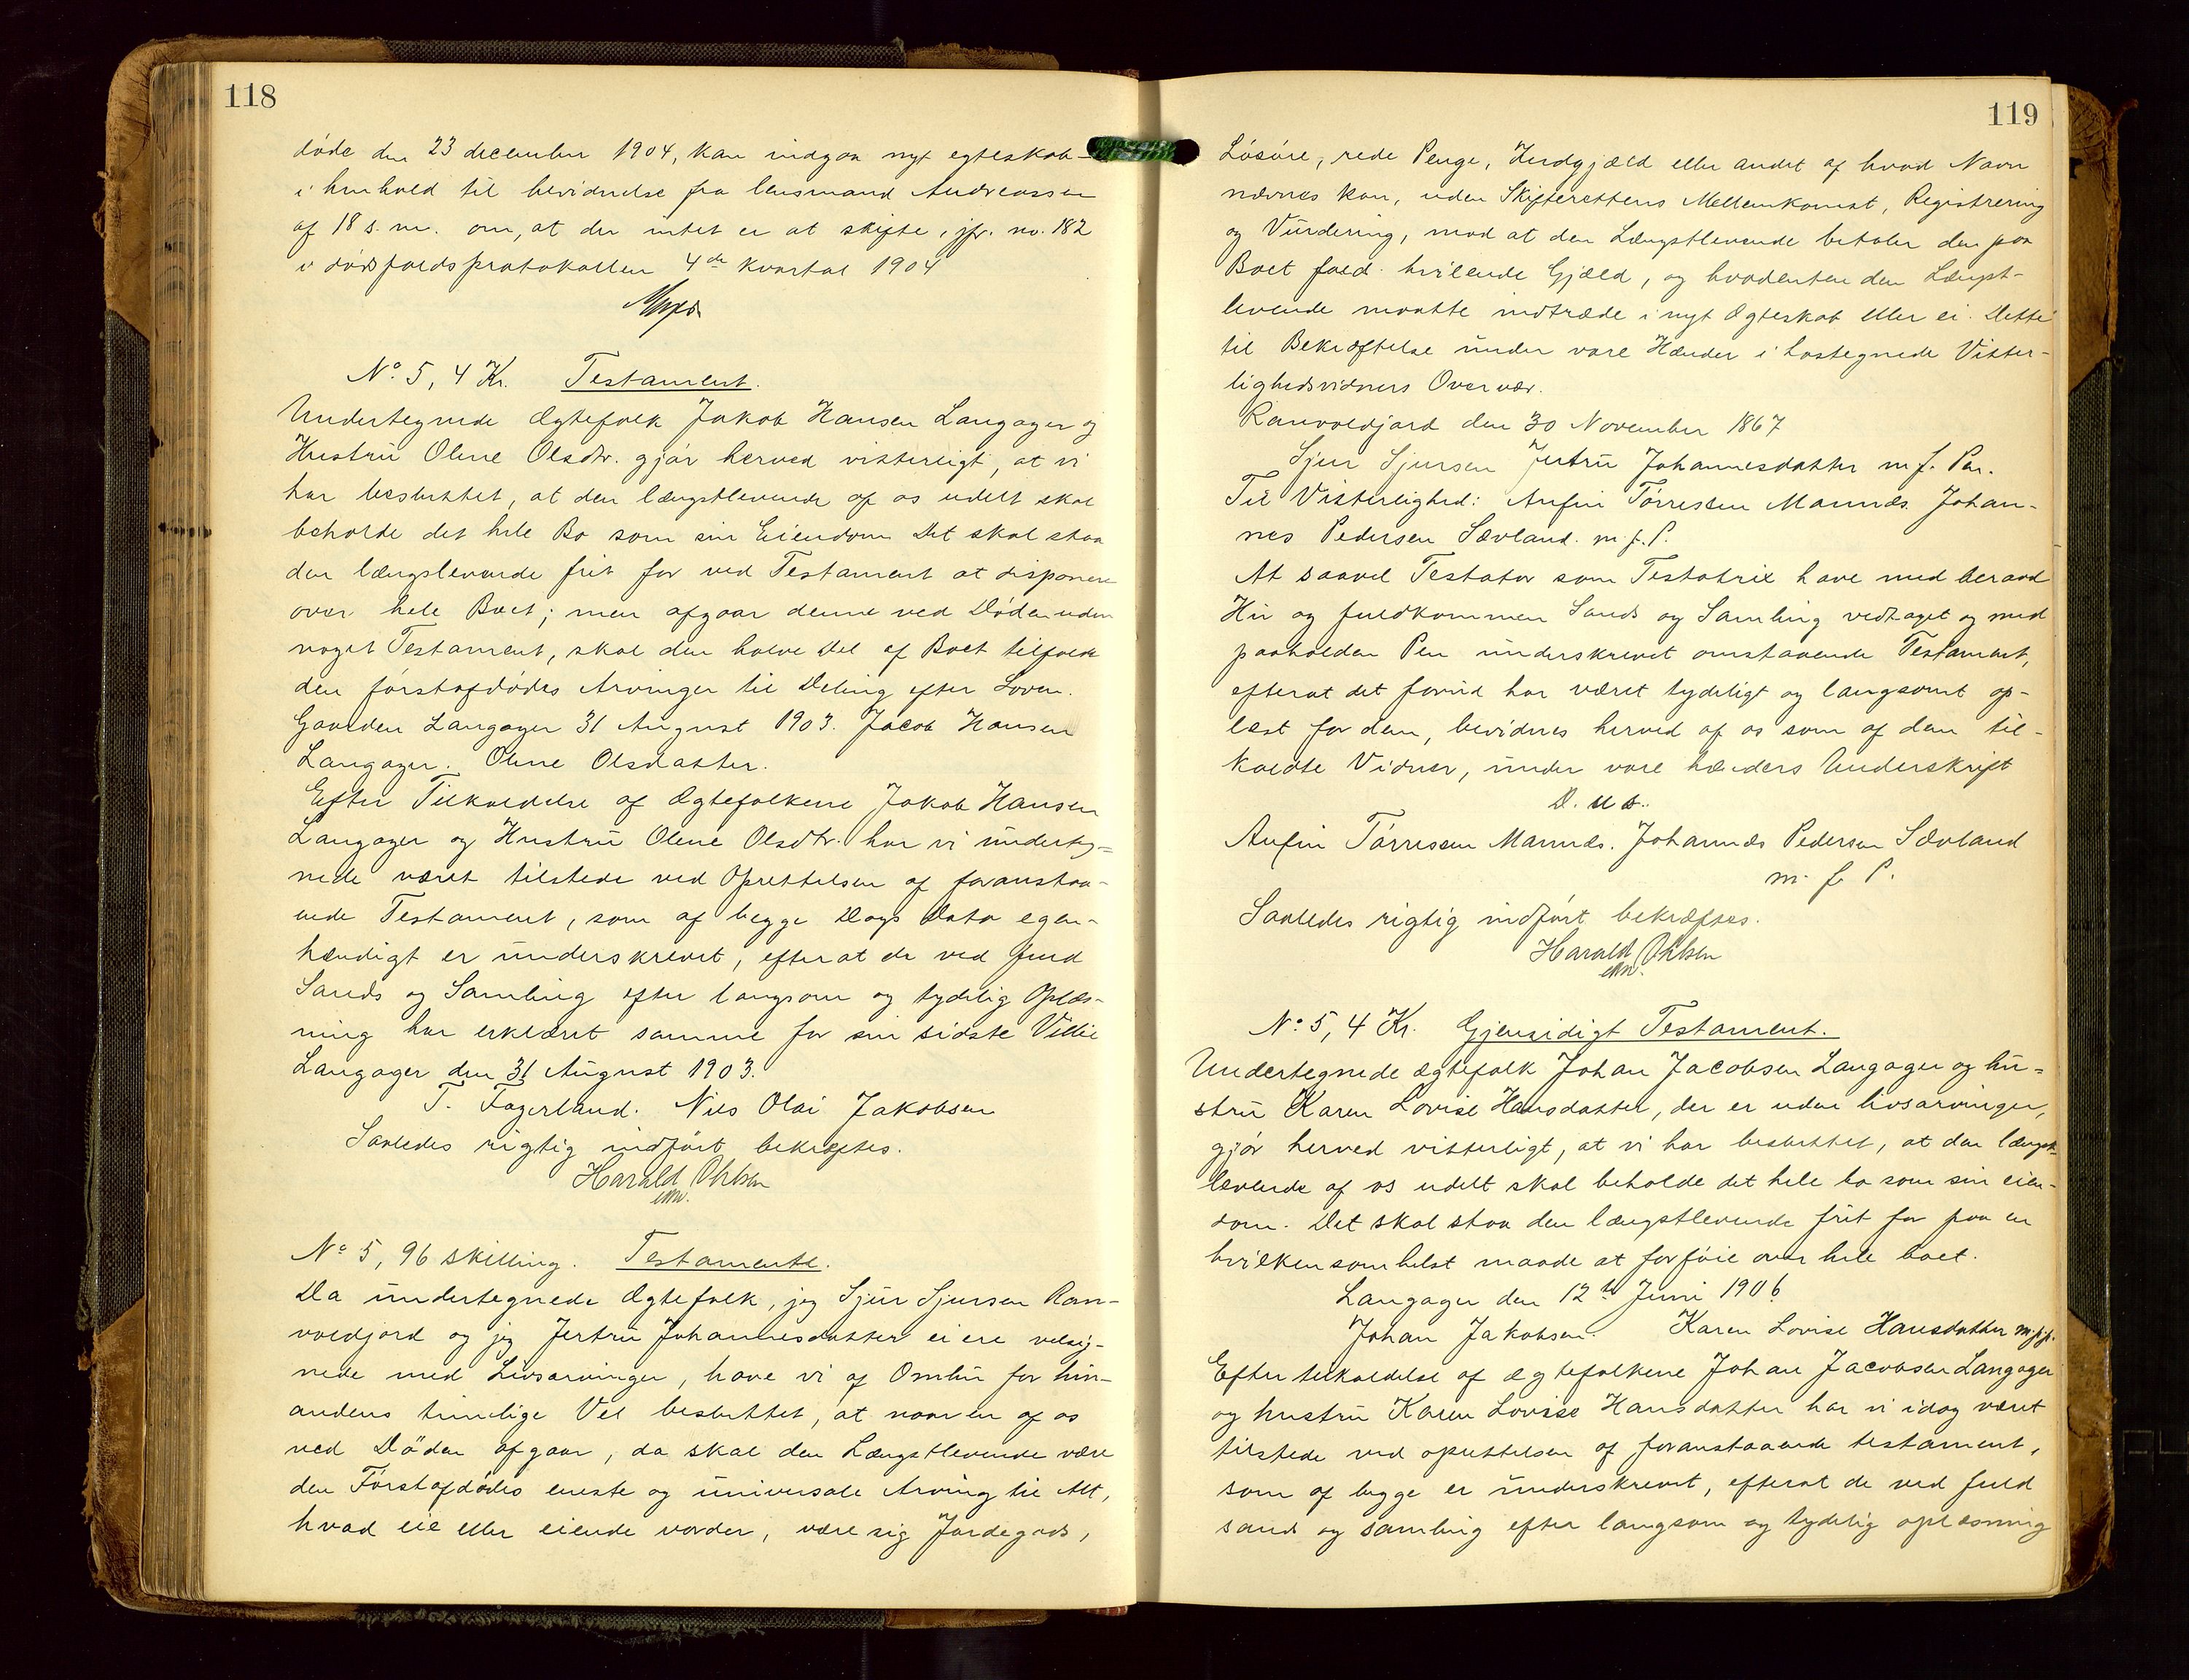 118
døde den 23 december 1904, kan indgaa nyt egteskab
i henhold til bevidnelse fra lensmand Andreassen
af 18 s. m. om, at der intet er at skifte, jfr. no. 182
i dødsfaldsprotokollen 4de kvartal 1904
No 5, 4 Kr. Testament.
Undertegnede Ægtefolk Jakob Hansen Langager og
Hustru Oline Olsdtr. gjør herved vitterligt, at vi
har besluttet, at den længstlevende af os udelt skal
beholde det hele Bo som sin Eiendom Det skal staa
den længslevende frit for ved Testament at disponere
over hele Boet; men afgaar denne ved Døden uden
noget Testament, skal den halve Del af Boet tilfalde
den førstafdødes Arvinger til Deling efter Loven.
Gaarden Langager 31 August 1903. Jacob Hansen
Langager. Oline Olsdatter.
Efter Tilkaldelse af Ægtefolkene Jakob Hansen
Langager og Hustru Oline Olsdtr. har vi underteg=
nede været tilstede ved Oprettelsen af foranstaa-
ende Testament, som af begge Dags Dato egen-
hændigt er underskrevet, efterat de ved fuld
Sands og Samling efter langsom og tydelig Oplæs-
ning har erklæret samme for sin sidste Villie
Langager den 31 August 1903.
T. Fagerland. Nils Olai Jakobsen
Saaledes rigtig indført bekræftes.
Harald Ohlsen
No 5, 96 skilling. Testamente.
Da undertegnede Ægtefolk, jeg Sjur Sjursen Ran-
voldjord og jeg Jertru Johannesdatter ei ere velsig-
nede med Livsarvinger, have vi af Omhu for hin-
andens timelige Vel besluttet, at naar en af os
ved Døden afgaar, da skal den Længstlevende være
den Førstafdødes eneste og universale Arving til Alt,
hvad eie eller eiende vorder, være sig Jordegods,
119
Løsøre, rede Penge, Indgjæld eller andet af hvad Navn
nævnes kan, uden Skifterettens Mellemkomst, Registrering
og Vurdering, mod at den Længstlevende betaler den paa
Boet fald. hvilende Gjæld, og hvadenten den Længst-
levende maatte indtræde i nyt Ægteskab eller ei. Dette
til Bekræftelse under vore Hænder i hostegnede Vitter-
lighedsvidners Overvær.
Ranvoldjord den 30 November 1867
Sjur Sjursen Jertru Johannesdatter m. f. Pen.
Til Vitterlighed: Anfin Tørressen Mannes. Johan-
nes Pedersen Sævland. m. f. P.
At saavel Testator som Testatrix have med beraad
Hu og fuldkommen Sands og Samling vedtaget og med
paaholden Pen underskrevet omstaaende Testament,
efterat det forud har været tydeligt og langsomt op-
læst for dem, bevidnes herved af os som af dem til-
kaldte Vidner, under vore hænders Underskrift
D. u s..
Anfin Tørressen Mannes. Johannes Pedersen Sævland
m. f. P.
Saaledes rigtig indført bekræftes.
Harald Ohlsen
No 5, 4 Kr. Gjensidigt Testament.
Undertegnede ægtefolk Johan Jacobsen Langager og hu=
stru Karen Lovise Hansdatter, der er uden livsarvinger,
gjør herved vitterligt, at vi har besluttet, at den længst-
levende af os udelt skal beholde det hele bo som sin eien-
dom. Det skal staa den længstlevende frit for paa en
hvilkensomhelst maade at forføie over hele boet.
Langager den 12te Juni 1906
Johan Jakobsen. Karen Lovise Hansdatter m. f. p.
Efter tilkaldelse af ægtefolkene Johan Jacobsen Langager
og hustru Karen Lovise Hansdatter har vi idag været
tilstede ved oprettelsen af foranstaaende testament,
som af begge er underskrevet, efterat de ved fuld
sands og samling efter langsom og tydelig oplæsning